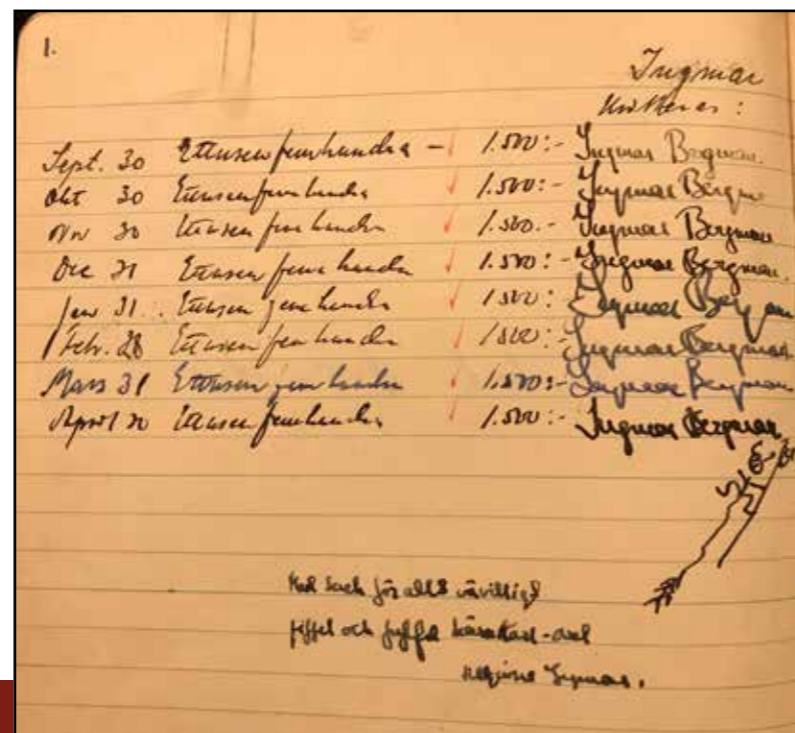 1.
Ingmar
kvitteras :
Sept. 30 Ettusenfemhundra - 1.500:- Ingmar Bergman.
Okt 30 Ettusenfemhundra 1.500:- Ingmar Bergman
Nov 30 Ettusen femhundra 1.500.- Ingmar Bergman
Dec 31 Ettusen femhundra 1.500:- Ingmar Bergman.
Jan 31. Ettusen femhundra 1500: Ingmar Bergman
Febr. 28 Ettusen femhundra 1500:- Ingmar Bergman
Mars 31 Ettusen femhundra 1.500:- Ingmar Bergman
April 30 Ettusen femhundra 1.500:- Ingmar Bergman
tack för allt
och
Ingmar.